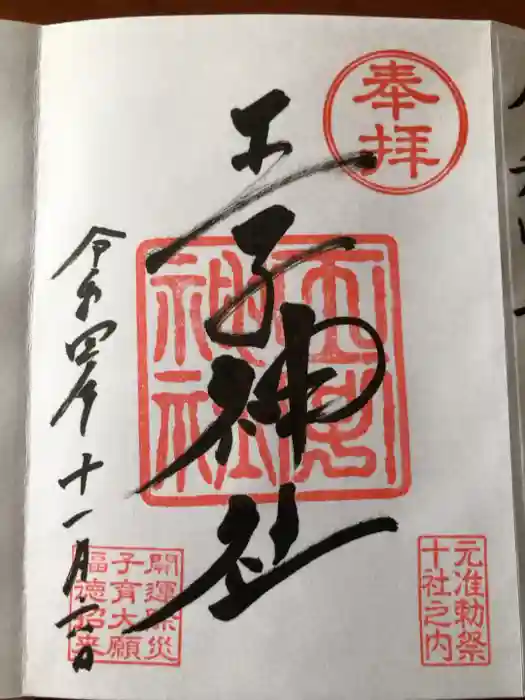 奉拝
王子神社
王子神社
令和四年十一月二日
元准勅祭
十社之内
開運除災
子育大願
福徳招来